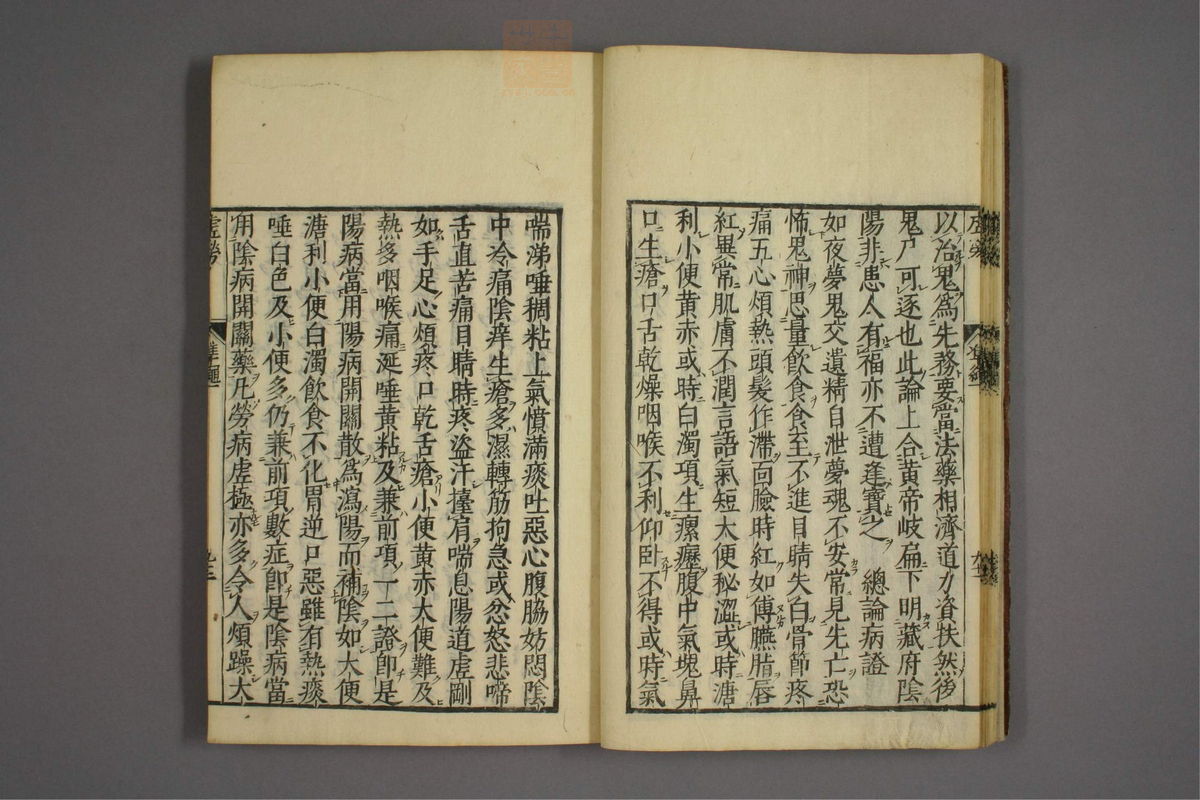 以治鬼爲先務要當法藥相濟道力資扶然後
鬼尸可逐也此論上合黄帝岐扁下明藏府陰
陽非患人有福亦不遭逢寶之　總論病證
如夜夢鬼交遺精自泄夢魂不安常見先亡恐
怖鬼神思量飲食食至不進目睛失白骨節疼
痛五心煩熱頭髮作滯面臉時紅如傅臙脂唇
紅異常肌膚不潤言語氣短大便秘澀或時溏
利小便黄赤或時白濁項生瘰癧腹中氣塊鼻
口生瘡口舌乾燥咽喉不利仰卧不得或時氣
喘涕唾稠粘上氣憤滿痰吐惡心腹脇妨悶陰
中冷痛陰痒生瘡多濕轉筋拘急或忿怒悲啼
舌直苦痛目睛時疼盗汗擡肩喘息陽道虚剛
如手足心煩疼口乾舌瘡小便黄赤大便難及
熱多咽喉痛涎唾黄粘及兼前項一二證卽是
陽病當用陽病開關散爲瀉陽而補陰如大便
溏利小便白濁飲食不化胃逆口惡雖有熱痰
唾白色及小便多仍兼前項數症卽是陰病當
用陰病開關藥凡勞病虚極亦多令人煩躁大
虚勞
準繩
九三